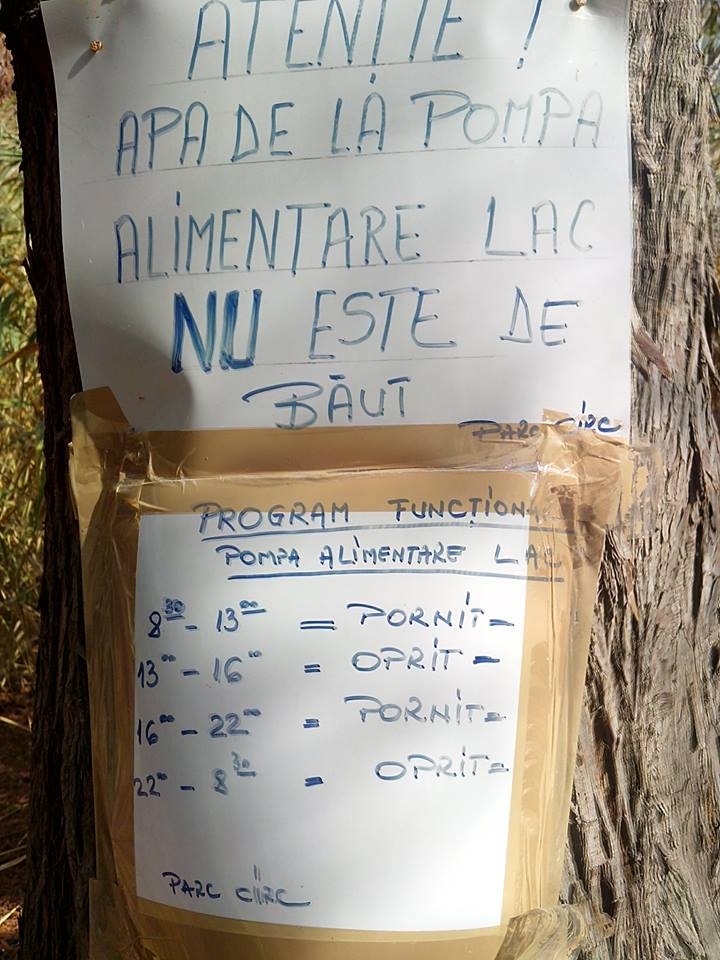 ATENȚIE !
APA DE LA POMPA
ALIMENTARE LAC
NU ESTE DE
BĂUT
PARC CIRC
PROGRAM
POMPA ALIMENTARE LAC
8³⁰ - 13⁰⁰ = PORNIT -
13⁰⁰ - 16⁰⁰ = OPRIT -
16⁰⁰ - 22⁰⁰ = PORNIT -
22⁰⁰ - 8³⁰ = OPRIT -
PARC CIRC